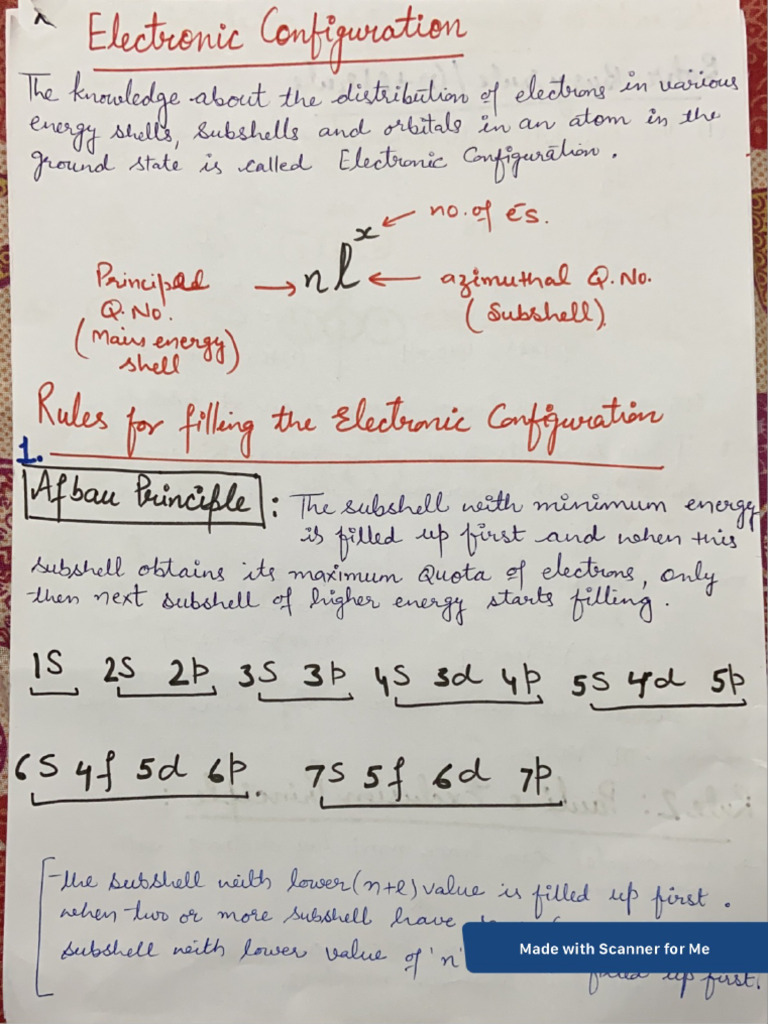 Electronic Configuration
The knowledge about the distribution of electrons in various
energy shells, subshells and orbitals in an atom in the
ground state is called Electronic Configuration.
x ← no. of e⁻s.
Principal → nl ← azimuthal Q.No.
Q.No. (Subshell)
(Main energy
shell)
Rules for filling the Electronic Configuration
1.
Afbau Principle : The subshell with minimum energy
is filled up first and when this
subshell obtains its maximum Quota of electrons, only
then next subshell of higher energy starts filling.
1S 2s 2p 3s 3p 4s 3d 4p 5s 4d 5p
6s 4f 5d 6p. 7s 5f 6d 7p
the subshell with lower (n+l) value is filled up first.
when two or more subshell have
subshell with lower value of 'n'
filled up first.
Made with Scanner for Me